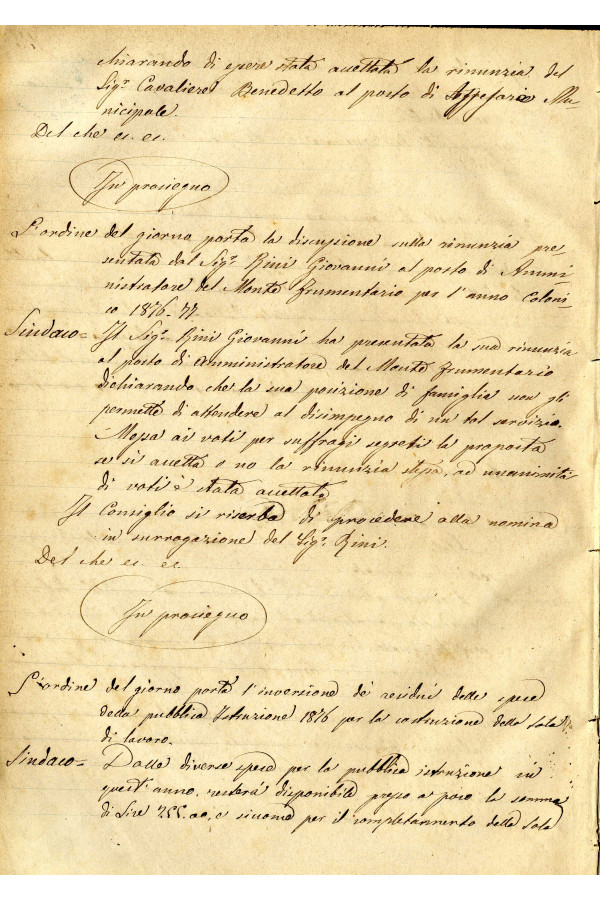 chiarando di essere stata accettata la rinunzia del
Sigr. Cavaliere Benedetto al posto di Assessore Mu-
nicipale.
Del che ec. ec.
In prosieguo
L'ordine del giorno porta la discussione sulla rinunzia pre-
sentata dal Sigr. Rini Giovanni al posto di Ammi
nistratore del Monte Frumentario per l'anno coloni-
co 1876-77.
Sindaco= Il Sigr. Rini Giovanni ha presentata la sua rinunzia
al posto di Amministratore del Monte Frumentario
dichiarando che la sua posizione di famiglia non gli
permette di attendere al disimpegno di un tal servizio.
Messa ai voti per suffragi segreti la proposta
se si accetta o no la rinunzia stessa, ad unanimità
di voti è stata accettata
Il Consiglio si riserba di procedere alla nomina
in surrogazione del Sigr. Rini.
Del che ec. ec.
In prosieguo
L'ordine del giorno porta l'inversione de' residui delle spese
della pubblica Istruzione 1876 per la costruzione della sala
di lavoro.
Sindaco= Dalle diverse spese per la pubblica istruzione in
quest'anno, resterà disponibile presso a poco la somma
di Lire 255.00, e siccome per il completamento della sala